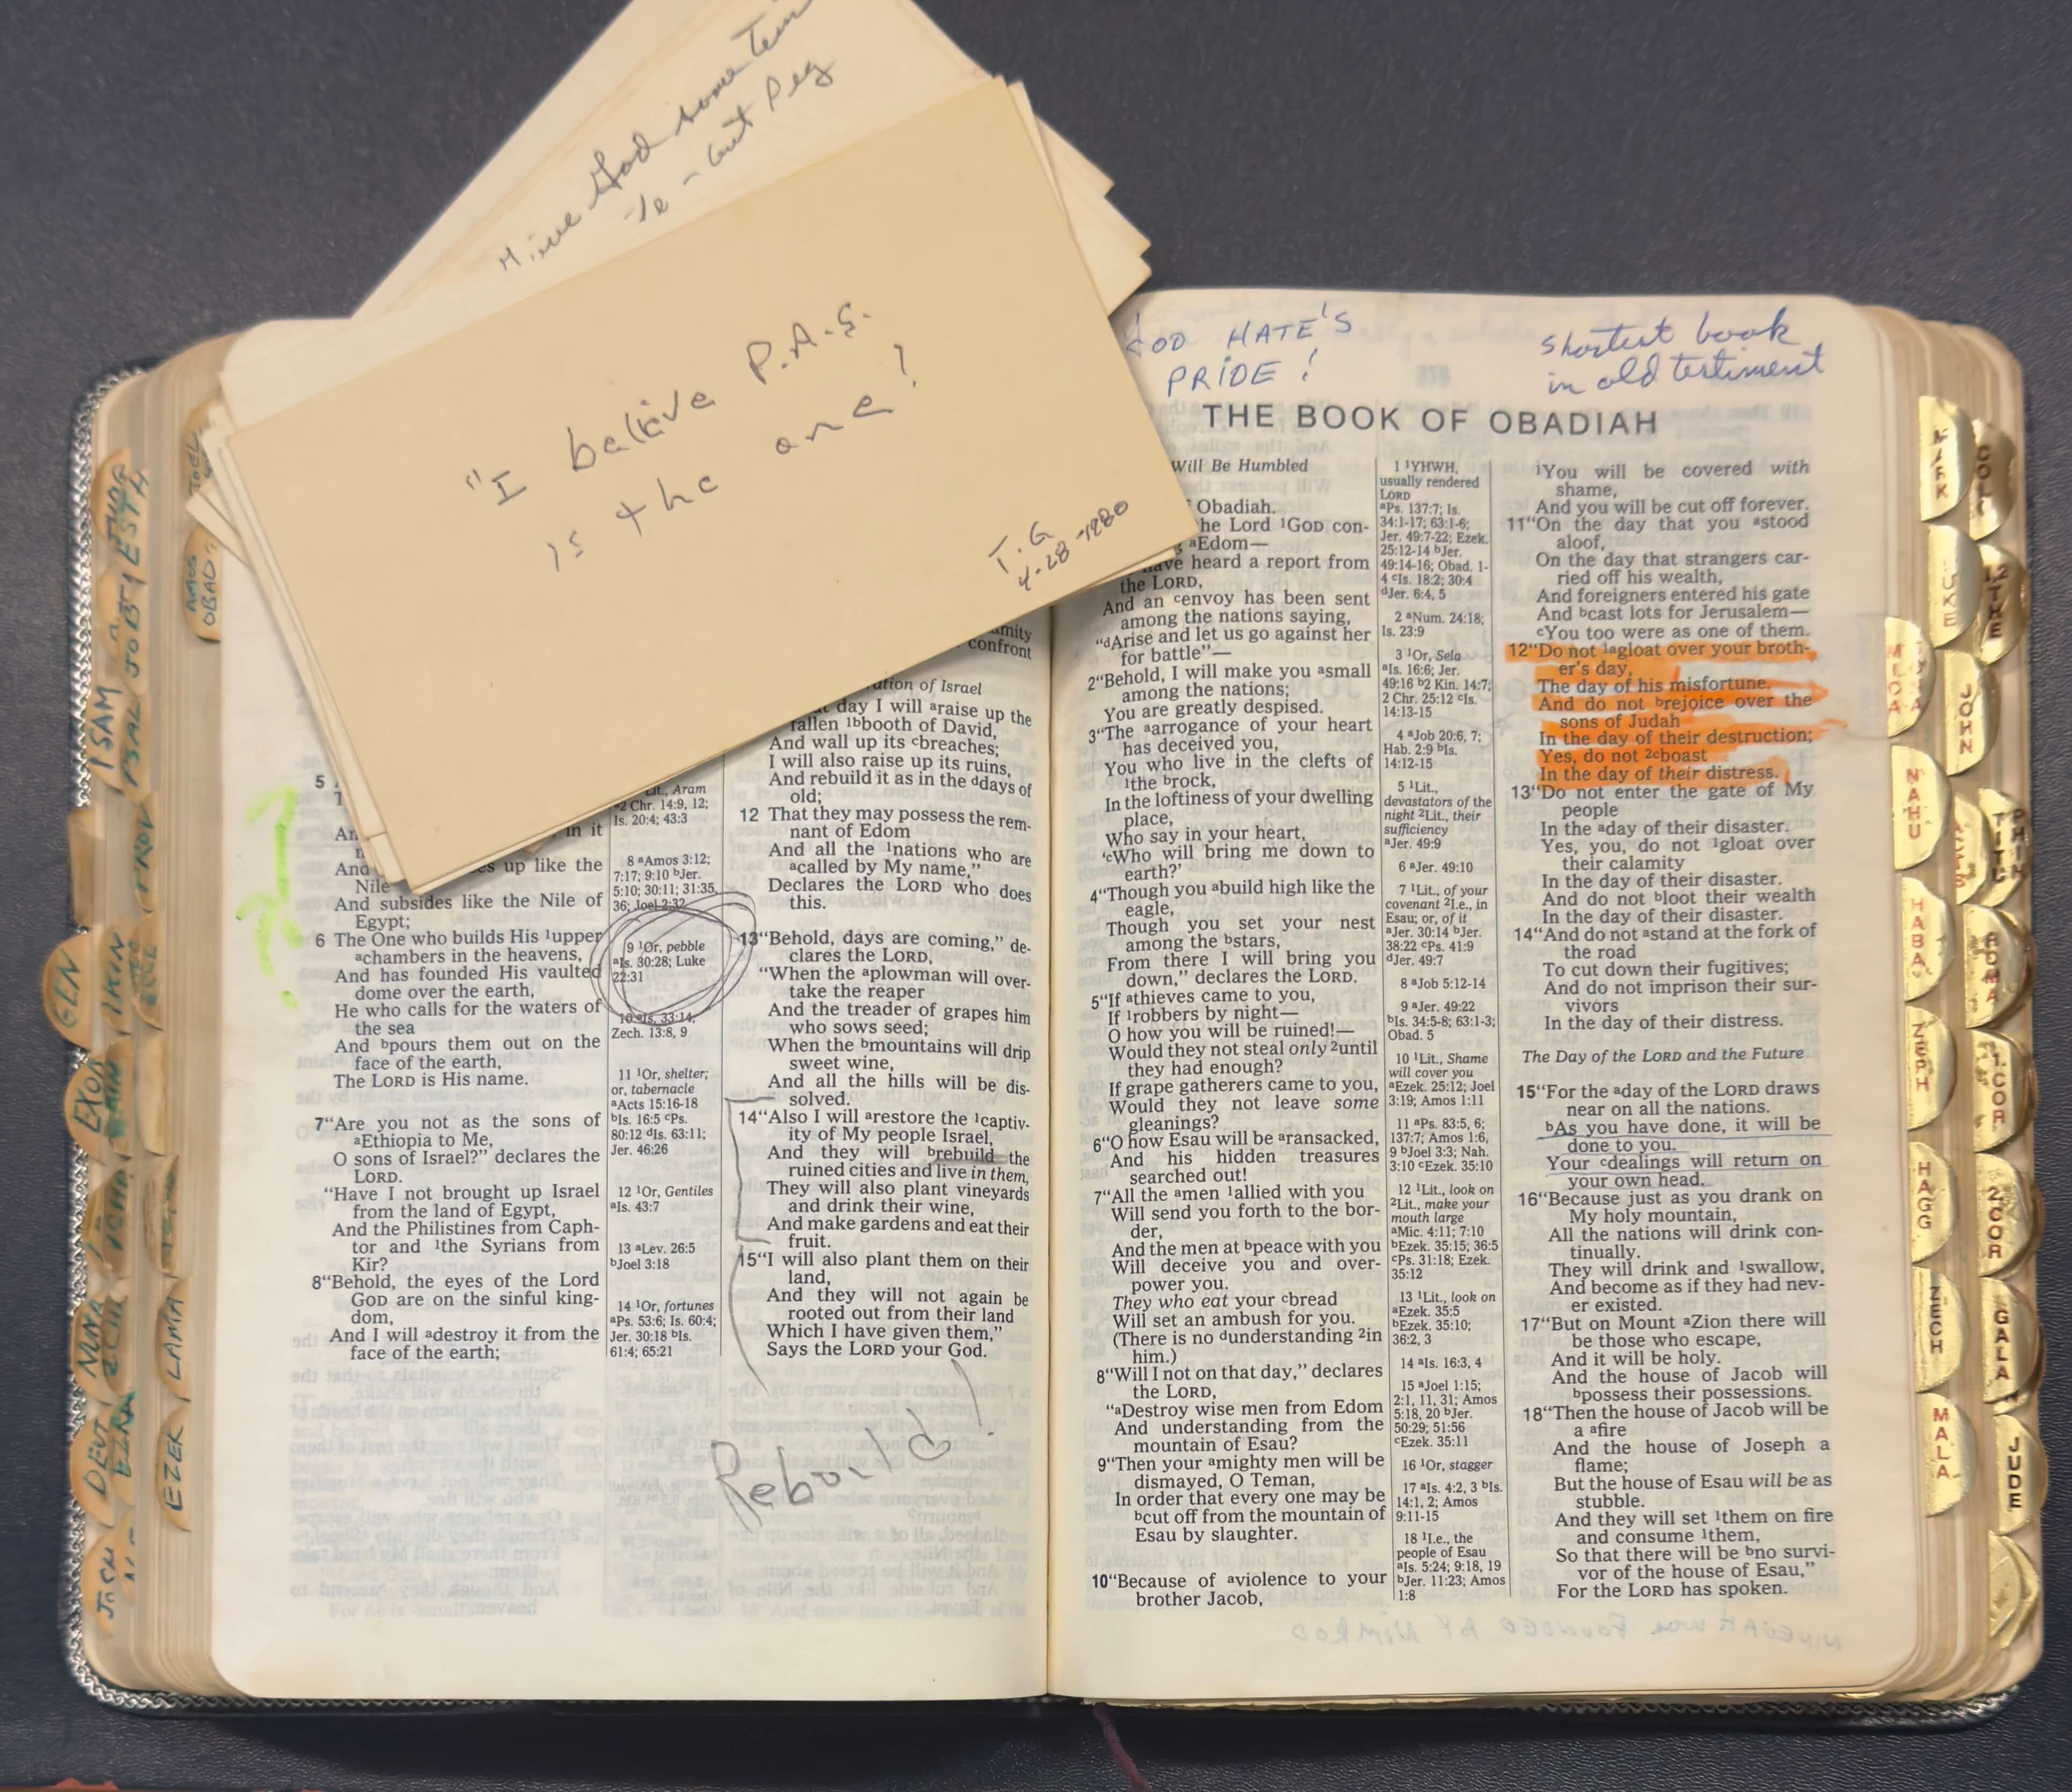 Hive God some
- but Peg
"I beleive P.A.G.
is the one!
T.G
4-28-1980
GOD HATE'S
PRIDE !
shortest book
in old testiment
confront
ation of Israel
day I will ᵃraise up the
fallen ¹ᵇbooth of David,
And wall up its ᶜbreaches;
I will also raise up its ruins,
And rebuild it as in the ᵈdays of
old;
12 That they may possess the rem-
nant of Edom
And all the ¹nations who are
ᵃcalled by My name,"
Declares the LORD who does
this.
13"Behold, days are coming," de-
clares the LORD,
"When the ᵃplowman will over-
take the reaper
And the treader of grapes him
who sows seed;
When the ᵇmountains will drip
sweet wine,
And all the hills will be dis-
solved.
14"Also I will ᵃrestore the ¹captiv-
ity of My people Israel,
And they will ᵇrebuild the
ruined cities and live in them,
They will also plant vineyards
and drink their wine,
And make gardens and eat their
fruit.
15"I will also plant them on their
land,
And they will not again be
rooted out from their land
Which I have given them,"
Says the LORD your God.
Rebuild!
5
in it
And
up like the
Nile
And subsides like the Nile of
Egypt;
6 The One who builds His ¹upper
ᵃchambers in the heavens,
And has founded His vaulted
dome over the earth,
He who calls for the waters of
the sea
And ᵇpours them out on the
face of the earth,
The LORD is His name.
7"Are you not as the sons of
ᵃEthiopia to Me,
O sons of Israel?" declares the
LORD.
"Have I not brought up Israel
from the land of Egypt,
And the Philistines from Caph-
tor and ¹the Syrians from
Kir?
8"Behold, the eyes of the Lord
GOD are on the sinful king-
dom,
And I will ᵃdestroy it from the
face of the earth;
Lit., Aram
2 Chr. 14:9, 12;
Is. 20:4; 43:3
8 ᵃAmos 3:12;
7:17; 9:10 ᵇJer.
5:10; 30:11; 31:35,
36; Joel 2:32
9 ¹Or, pebble
ᵃIs. 30:28; Luke
22:31
10 ᵃIs. 33:14;
Zech. 13:8, 9
11 ¹Or, shelter;
or, tabernacle
ᵃActs 15:16-18
ᵇIs. 16:5 ᶜPs.
80:12 ᵈIs. 63:11;
Jer. 46:26
12 ¹Or, Gentiles
ᵃIs. 43:7
13 ᵃLev. 26:5
ᵇJoel 3:18
14 ¹Or, fortunes
ᵃPs. 53:6; Is. 60:4;
Jer. 30:18 ᵇIs.
61:4; 65:21
THE BOOK OF OBADIAH
Will Be Humbled
Obadiah.
the Lord ¹GOD con-
ᵃEdom—
have heard a report from
the LORD,
And an ᶜenvoy has been sent
among the nations saying,
"ᵈArise and let us go against her
for battle"—
2"Behold, I will make you ᵃsmall
among the nations;
You are greatly despised.
3"The ᵃarrogance of your heart
has deceived you,
You who live in the clefts of
¹the ᵇrock,
In the loftiness of your dwelling
place,
Who say in your heart,
'ᶜWho will bring me down to
earth?'
4"Though you ᵃbuild high like the
eagle,
Though you set your nest
among the ᵇstars,
From there I will bring you
down," declares the LORD.
5"If ᵃthieves came to you,
If ¹robbers by night—
O how you will be ruined!—
Would they not steal only ²until
they had enough?
If grape gatherers came to you,
Would they not leave some
gleanings?
6"O how Esau will be ᵃransacked,
And his hidden treasures
searched out!
7"All the ᵃmen ¹allied with you
Will send you forth to the bor-
der,
And the men at ᵇpeace with you
Will deceive you and over-
power you.
They who eat your ᶜbread
Will set an ambush for you.
(There is no ᵈunderstanding ²in
him.)
8"Will I not on that day," declares
the LORD,
"ᵃDestroy wise men from Edom
And understanding from the
mountain of Esau?
9"Then your ᵃmighty men will be
dismayed, O Teman,
In order that every one may be
ᵇcut off from the mountain of
Esau by slaughter.
10"Because of ᵃviolence to your
brother Jacob,
1 ¹YHWH,
usually rendered
LORD
ᵃPs. 137:7; Is.
34:1-17; 63:1-6;
Jer. 49:7-22; Ezek.
25:12-14 ᵇJer.
49:14-16; Obad. 1-
4 ᶜIs. 18:2; 30:4
ᵈJer. 6:4, 5
2 ᵃNum. 24:18;
Is. 23:9
3 ¹Or, Sela
ᵃIs. 16:6; Jer.
49:16 ᵇ2 Kin. 14:7;
2 Chr. 25:12 ᶜIs.
14:13-15
4 ᵃJob 20:6, 7;
Hab. 2:9 ᵇIs.
14:12-15
5 ¹Lit.,
devastators of the
night ²Lit., their
sufficiency
ᵃJer. 49:9
6 ᵃJer. 49:10
7 ¹Lit., of your
covenant ²I.e., in
Esau; or, of it
ᵃJer. 30:14 ᵇJer.
38:22 ᶜPs. 41:9
ᵈJer. 49:7
8 ᵃJob 5:12-14
9 ᵃJer. 49:22
ᵇIs. 34:5-8; 63:1-3;
Obad. 5
10 ¹Lit., Shame
will cover you
ᵃEzek. 25:12; Joel
3:19; Amos 1:11
11 ᵃPs. 83:5, 6;
137:7; Amos 1:6,
9 ᵇJoel 3:3; Nah.
3:10 ᶜEzek. 35:10
12 ¹Lit., look on
²Lit., make your
mouth large
ᵃMic. 4:11; 7:10
ᵇEzek. 35:15; 36:5
ᶜPs. 31:18; Ezek.
35:12
13 ¹Lit., look on
ᵃEzek. 35:5
ᵇEzek. 35:10;
36:2, 3
14 ᵃIs. 16:3, 4
15 ᵃJoel 1:15;
2:1, 11, 31; Amos
5:18, 20 ᵇJer.
50:29; 51:56
ᶜEzek. 35:11
16 ¹Or, stagger
17 ᵃIs. 4:2, 3 ᵇIs.
14:1, 2; Amos
9:11-15
18 ¹I.e., the
people of Esau
ᵃIs. 5:24; 9:18, 19
ᵇJer. 11:23; Amos
1:8
¹You will be covered with
shame,
And you will be cut off forever.
11"On the day that you ᵃstood
aloof,
On the day that strangers car-
ried off his wealth,
And foreigners entered his gate
And ᵇcast lots for Jerusalem—
ᶜYou too were as one of them.
12"Do not ¹ᵃgloat over your broth-
er's day,
The day of his misfortune.
And do not ᵇrejoice over the
sons of Judah
In the day of their destruction;
Yes, do not ²ᶜboast
In the day of their distress.
13"Do not enter the gate of My
people
In the ᵃday of their disaster.
Yes, you, do not ¹gloat over
their calamity
In the day of their disaster.
And do not ᵇloot their wealth
In the day of their disaster.
14"And do not ᵃstand at the fork of
the road
To cut down their fugitives;
And do not imprison their sur-
vivors
In the day of their distress.
The Day of the LORD and the Future
15"For the ᵃday of the LORD draws
near on all the nations.
ᵇAs you have done, it will be
done to you.
Your ᶜdealings will return on
your own head.
16"Because just as you drank on
My holy mountain,
All the nations will drink con-
tinually.
They will drink and ¹swallow,
And become as if they had nev-
er existed.
17"But on Mount ᵃZion there will
be those who escape,
And it will be holy.
And the house of Jacob will
ᵇpossess their possessions.
18"Then the house of Jacob will be
a ᵃfire
And the house of Joseph a
flame;
But the house of Esau will be as
stubble.
And they will set ¹them on fire
and consume ¹them,
So that there will be ᵇno survi-
vor of the house of Esau,"
For the LORD has spoken.
GEN
EXOD
NUM
DEUT
JOSH
1 SAM
1KIN
EZRA
ESTH
JOB
LAMA
EZEK
JOEL
AMOS
OBAD
NAHU
HABA
ZEPH
HAGG
ZECH
MALA
MARK
LUKE
JOHN
ACTS
ROMA
1.COR
2COR
GALA
PHIL
COLO
TITU
JUDE